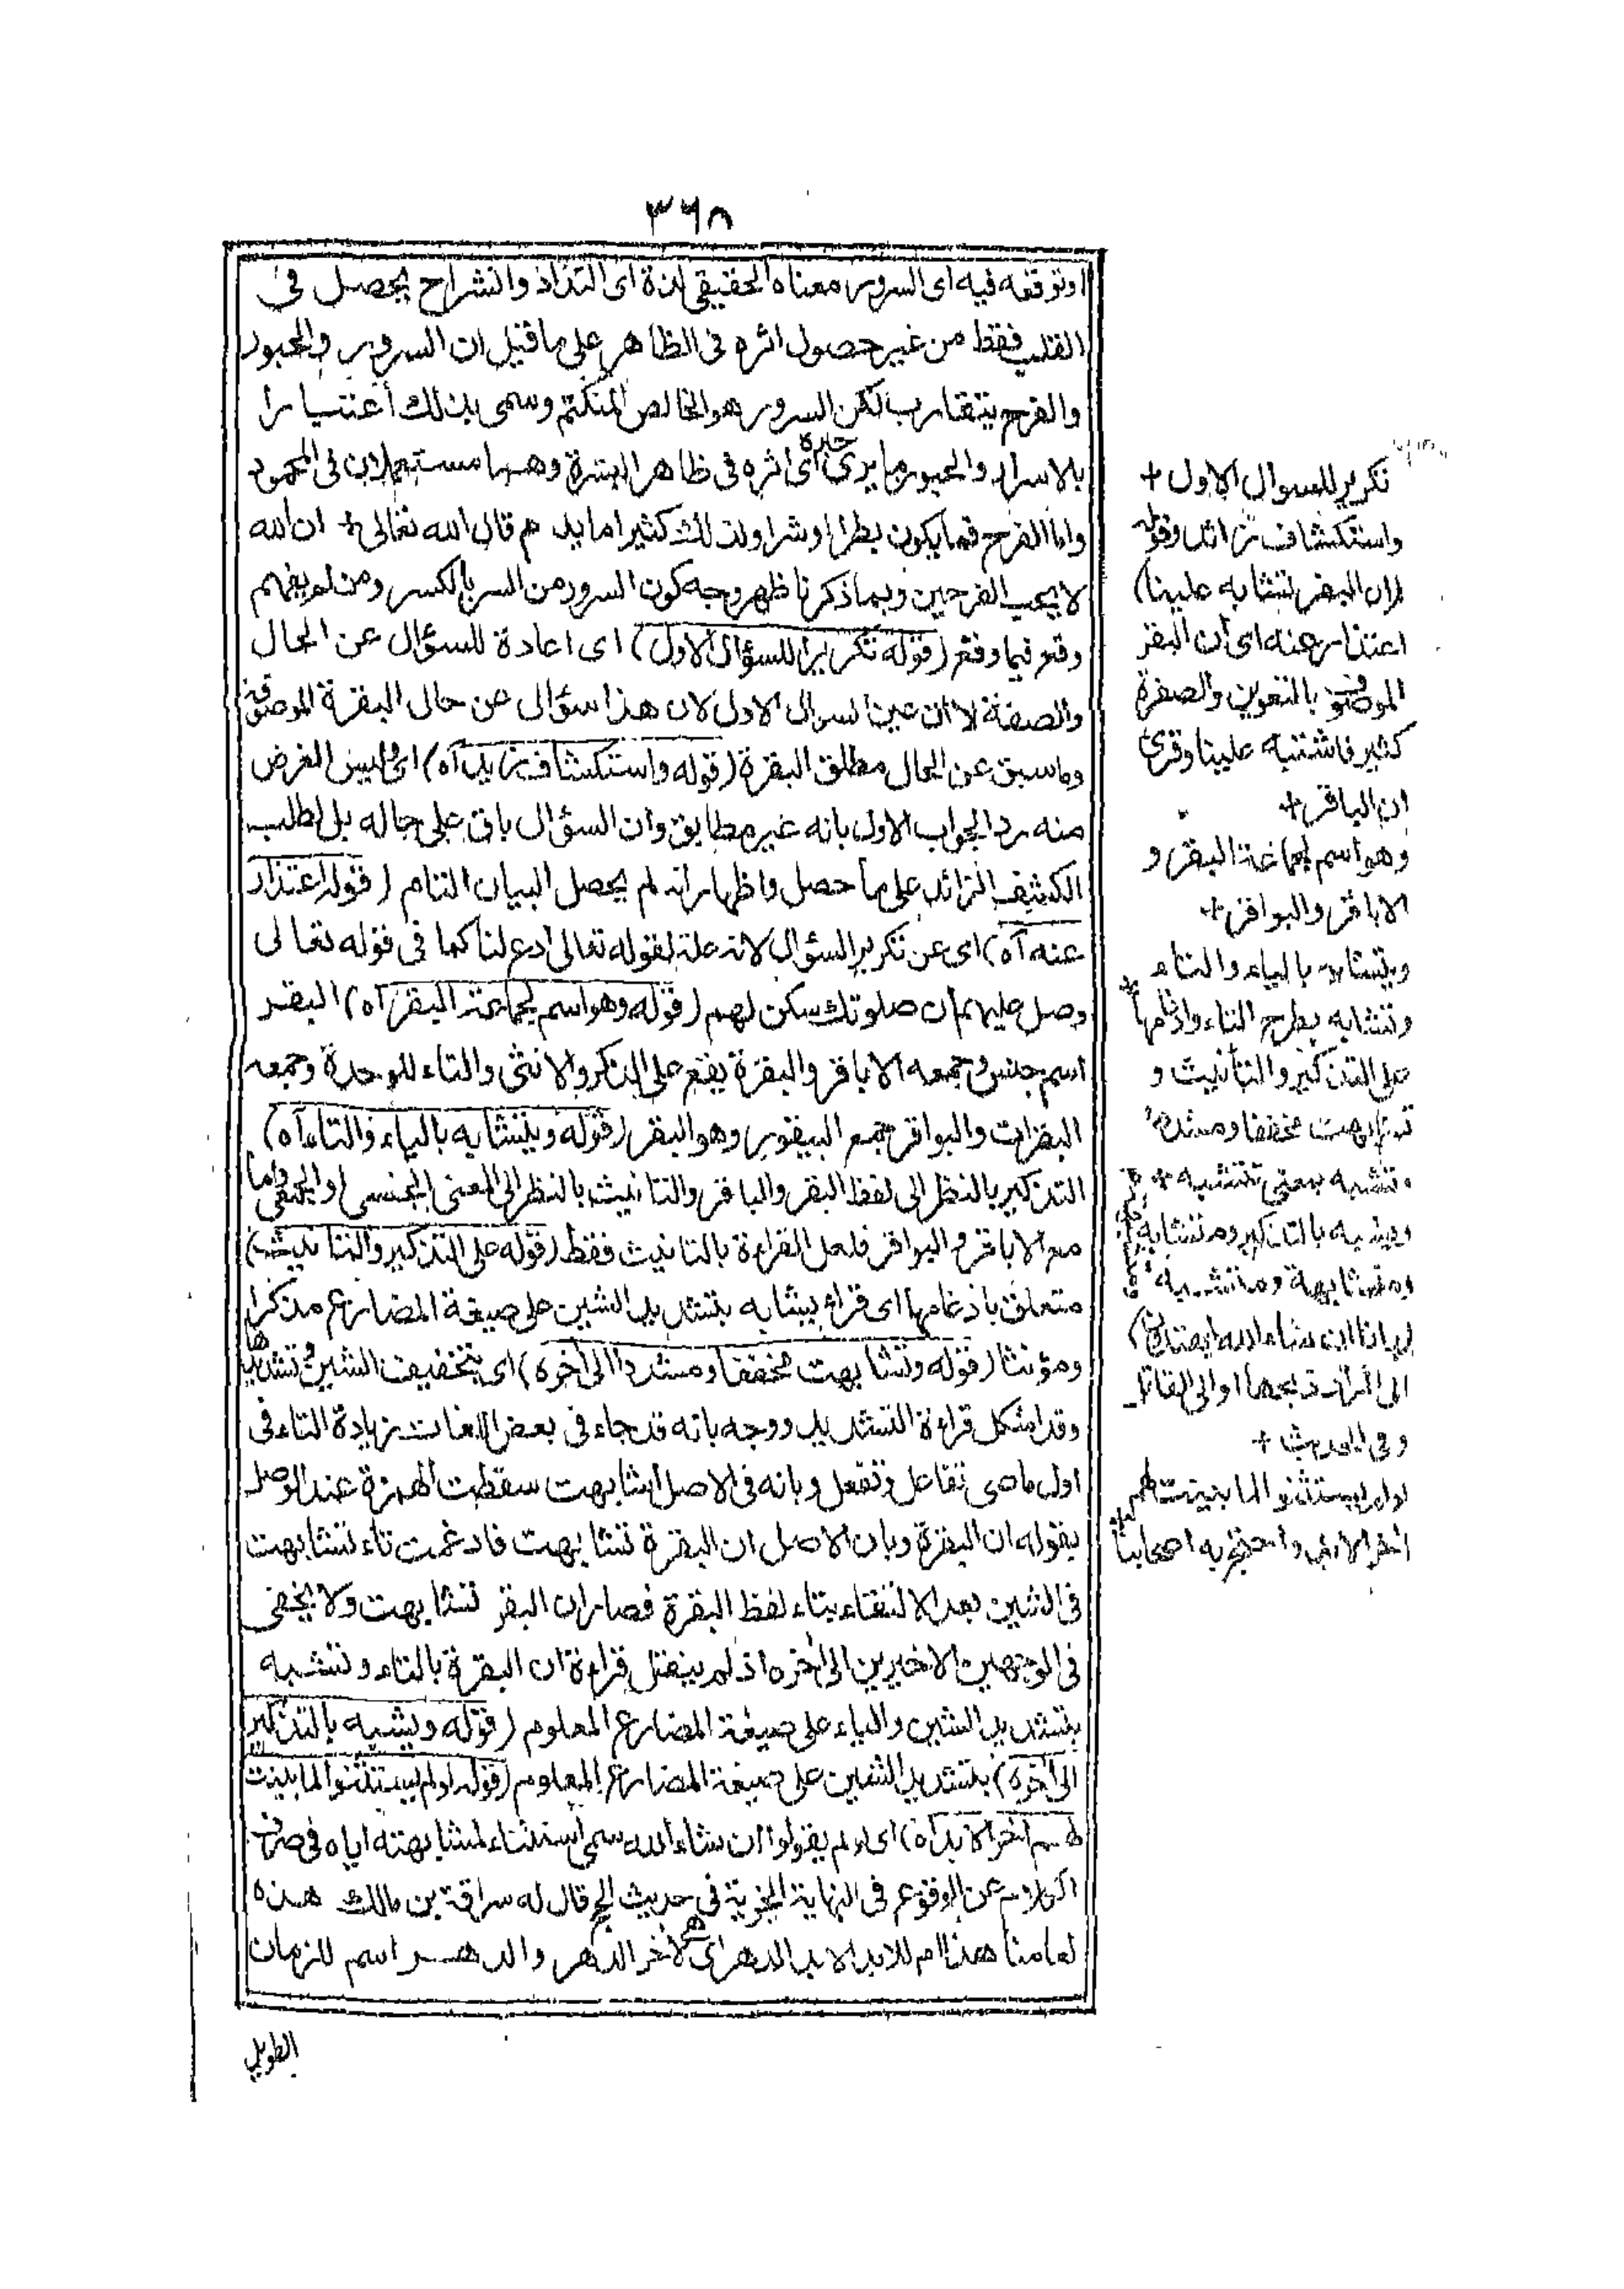 ٣٦٨
او توقعه فيه اى السرور معناه الحقيقي لذة اى التذاذ وانشراح يحصل فى
القلب فقط من غير حصول اثره فى الظاهر على ما قيل ان السرور والحبور
والفرح يتقارب لكن السرور هو الخالص المنكتم وسمى بذلك اعتبارا
بالاسرار والحبور ما يرى حبره اى اثره فى ظاهر البشرة وهما مستعملان فى المحمود
واما الفرح فما يكون بطرا او شرا ولذلك كثيرا ما يذم قال الله تعالى + ان الله
لا يحب الفرحين وبما ذكرنا ظهر وجه كون السرور من السر بالكسر ومن لم يفهم
وقع فيما وقع (قوله تكرير للسؤال الاول) اى اعادة للسؤال عن الحال
والصفة لا ان عين السوال الاول لان هذا سؤال عن حال البقرة الموصوفة
وما سبق عن الحال مطلق البقرة (قوله واستكشاف زايد آه) اى ليس الغرض
منه رد الجواب الاول بانه غير مطابق وان السؤال باق على حاله بل لطلب
الكشف الزائد على ما حصل واظهار انه لم يحصل البيان التام (قوله اعتذار
عنه آه) اى عن تكرير السؤال لانه علة لقوله تعالى ادع لنا كما فى قوله تعالى
وصل عليهم ان صلوتك سكن لهم (قوله وهو اسم لجماعة البقر آه) البقر
اسم جنس وجمعه الاباقر والبقرة يقع على الذكر والانثى والتاء للوحدة وجمعه
البقرات والبواقر جمع البيقور وهو البقر (قوله ويتشابه بالياء والتاء آه)
التذكير بالنظر الى لفظ البقر والباقر والتانيث بالنظر الى المعنى الجنسى واما
مع الاباقر و البواقر فلعل القراءة بالتانيث فقط (قوله على التذكير والتانيث)
متعلق باذغامها اى قراء يشابه بتشديد الشين على صيغة المضارع مذكرا
ومؤنثا (قوله وتشابهت مخففا ومشددا الى آخره) اى بتخفيف الشين وتشديدها
وقد اشكل قراءة التشديد ووجه بانه قد جاء فى بعض اللغات زيادة التاء فى
اول ماضى تفاعل وتفعل وبانه فى الاصل اشابهت سقطت الهمزة عند الوصل
بقوله ان البقرة وبان الاصل ان البقرة تشابهت فادغمت تاء تشابهت
فى الشين بعد الالتقاء بتاء لفظ البقرة فصار ان البقر تشابهت ولا يخفى
فى الوجهين الاخيرين الى اخره اذ لم ينقل قراءة ان البقرة بالتاء وتشبه
بتشديد الشين والياء على صيغة المضارع المعلوم (قوله ويشبه بالتذكير
الى آخره) بتشديد الشين على صيغة المضارع المعلوم (قوله لو لم يستثنوا لما بينت
لهم آخر الابد آه) اى لو لم يقولوا ان شاء الله سمى استثناء لمشابهته اياه فى صرف
الكلام عن الوقوع فى النهاية الجزرية فى حديث الحج قال له سراقة بن مالك هذه
لعامنا هذا ام للابد الابد الدهر اى لآخر الدهر والدهر اسم للزمان
الطويل
تكرير للسوال الاول +
واستكشاف زائد وقوله
(ان البقر تشابه علينا)
اعتذار عنه اى ان البقر
الموصوف بالتعوين والصفرة
كثير فاشتبه علينا وقرئ
ان الباقر +
وهو اسم لجماعة البقر و
الاباقر والبواقر +
ويتشابه بالياء والتاء
وتشابه بطرح التاء واذغامها
على التذكير والتأنيث و
تشابهت مخففا ومشددا
وتشبه بمعنى تتشبه +
ويشبه بالتذكير ومتشابه
ومتشابهة ومتشبه
(وانا ان شاء الله لمهتدون)
الى المراد ذبحها او الى القاتل
وفى الحديث +
لو لم يستثنوا لما بينت لهم
آخر الابد واحتج به اصحابنا